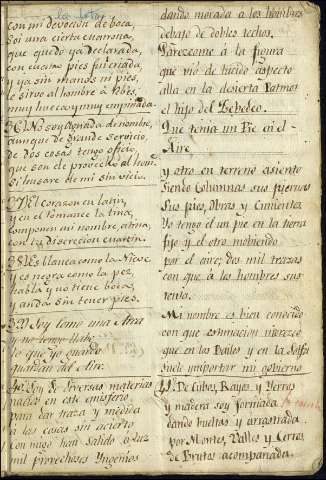 con mi devocion de boca,
soi una cierta
que quedo ya declarada,
con cuatro pies
y ya sin manos ni pies,
le sirvo al hombre
muy hueca y muy empinada.
No soy de nombre,
aunque de grande servicio,
de dos cosas tengo oficio,
que son de provecho al hom
si husare de mi sin vicio.
El corazon en latin,
y en el romance la tina,
componen mi nombre, atina,
con la discrecion
Es blanca como la Nieve
y es negra como la pez,
habla y no tiene boca,
y anda sin tener pies.
Soy como una
y no tengo
lo que yo
del Aire.
Soy de diversas materias
nacido en este emisferio
para dar traza y medida
a las casas sin acierto
con migo han salido a luz
mil provechosos Yngenios
dando morada a los hombres
debajo de dobles techos.
Parezcome a la figura
que vio de lucido aspecto
alla en la desierta Patmos
el hijo del Zebedeo.
Que tenia un Pie en el
Aire
y otro en terreno asiento
siendo Columnas sus piernas
sus pies, obras y Cimientos
Yo tengo el un pie en la tierra
fijo y el otro mobiendo
por el aire; dos mil trazas
con que a los hombres sus
tento.
Mi nombre es bien conocido
con que estimacion merezco
que en los Bailes y en la Solfa
suele importar mi gobierno
De Cubos, Rayos, y Yerros
y madera soy formada
dando bueltas y arrastrada
por Montes, Valles y Cerros
de Brutos acompañada.